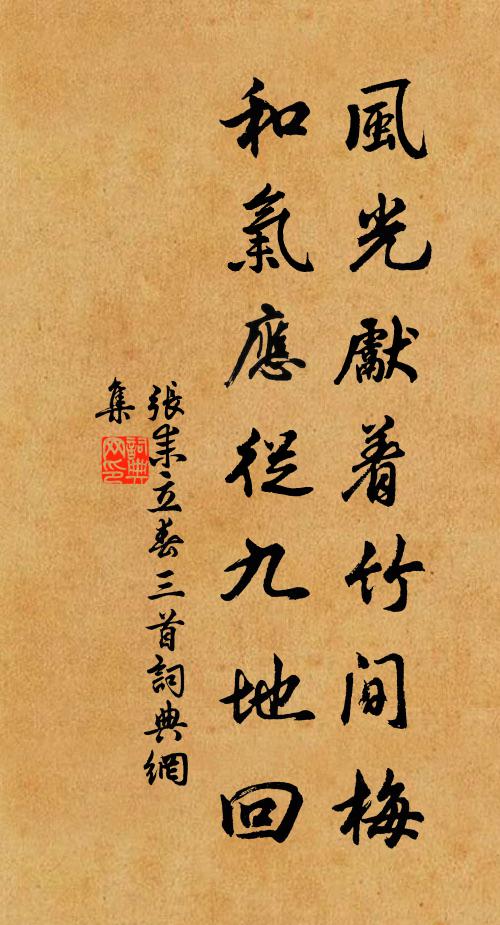 風光獻着竹間梅
和氣應從九地回
張耒立春三首詞典網
集
詞典網印